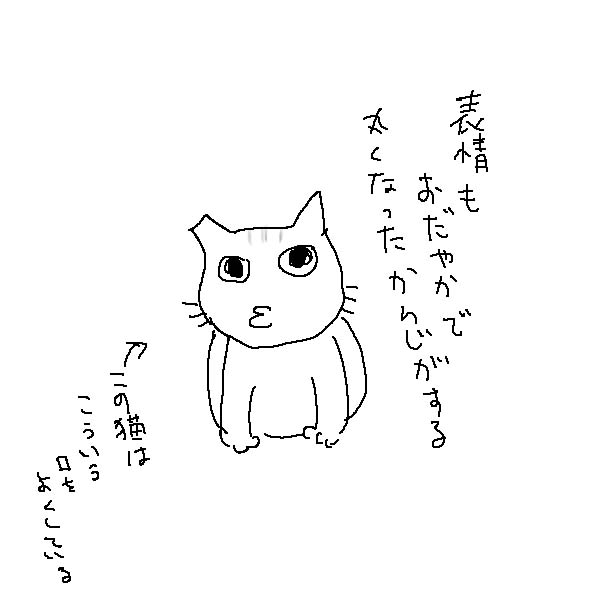 表情も
おだやかで
丸くなったかんじがする
この猫は
こういう
口を
よくしている